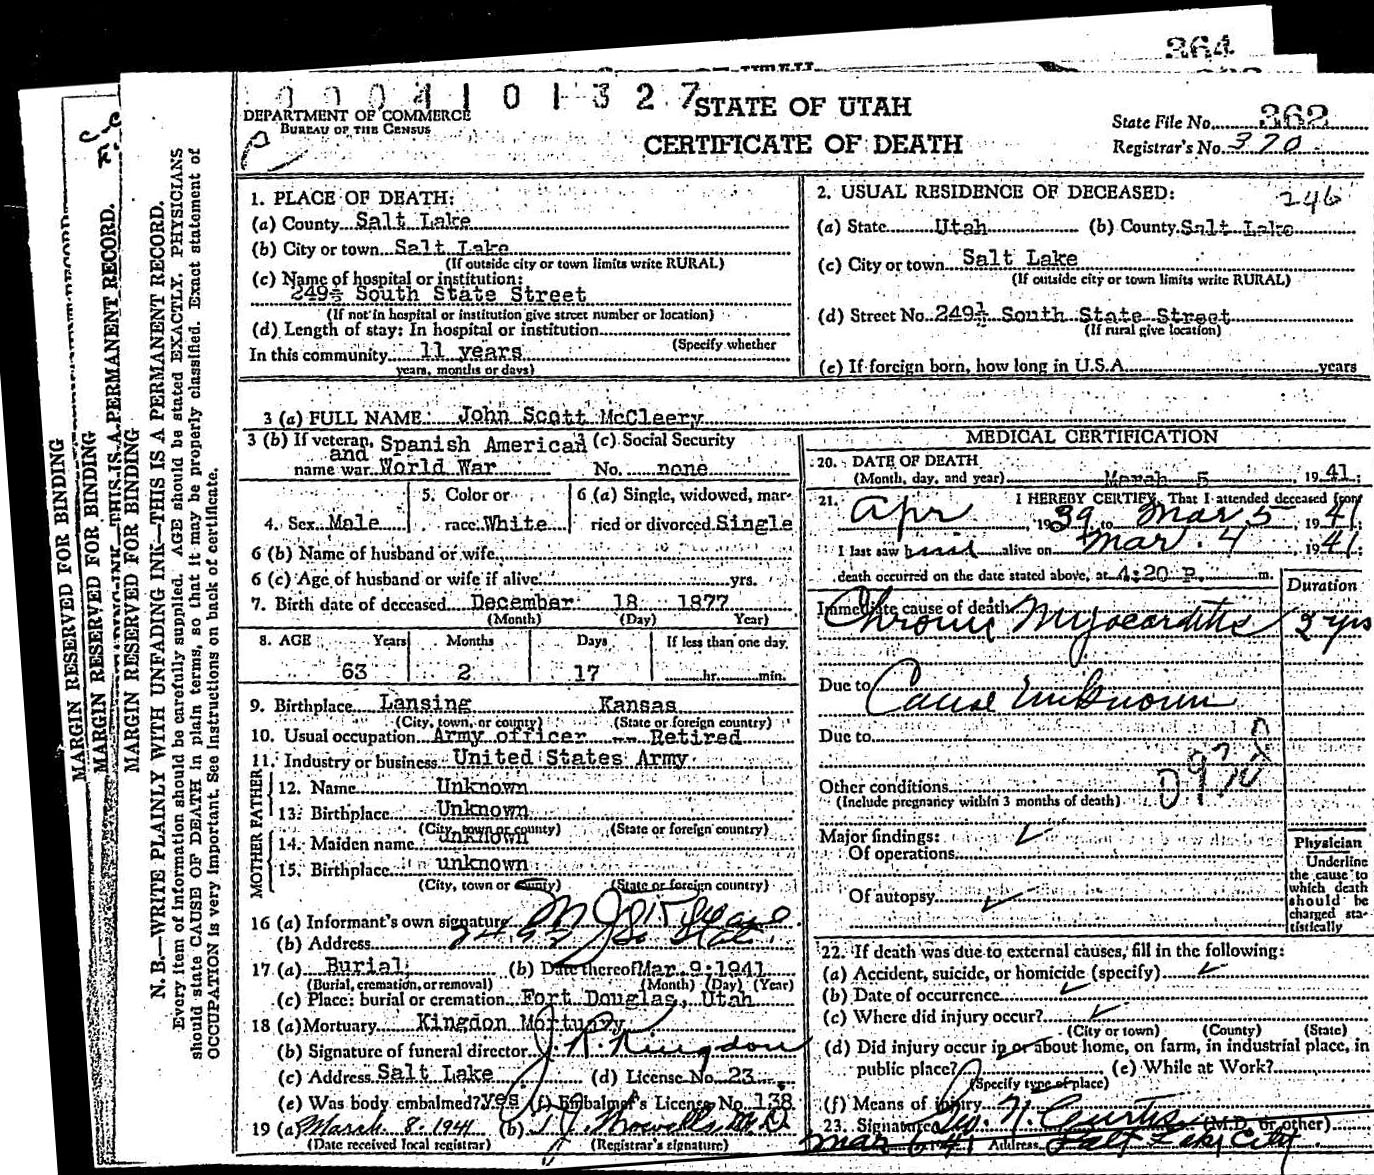 364
0004101327
STATE OF UTAH
CERTIFICATE OF DEATH
DEPARTMENT OF COMMERCE
BUREAU OF THE CENSUS
State File No. 362
Registrar's No. 370
MARGIN RESERVED FOR BINDING
MARGIN RESERVED FOR BINDING
MARGIN RESERVED FOR BINDING
N. B.—WRITE PLAINLY WITH UNFADING INK—THIS IS A PERMANENT RECORD.
Every item of information should be carefully supplied. AGE should be stated EXACTLY. PHYSICIANS
should state CAUSE OF DEATH in plain terms, so that it may be properly classified. Exact statement of
OCCUPATION is very important. See Instructions on back of certificate.
1. PLACE OF DEATH:
(a) County Salt Lake
(b) City or town Salt Lake
(If outside city or town limits write RURAL)
(c) Name of hospital or institution:
249½ South State Street
(If not in hospital or institution give street number or location)
(d) Length of stay: In hospital or institution
(Specify whether
In this community 11 years
years, months or days)
2. USUAL RESIDENCE OF DECEASED:
246
(a) State Utah (b) County Salt Lake
(c) City or town Salt Lake
(If outside city or town limits write RURAL)
(d) Street No. 249½ South State Street
(If rural give location)
(e) If foreign born, how long in U.S.A. years
3 (a) FULL NAME: John Scott McCleery
3 (b) If veteran, Spanish American (c) Social Security
and
name war World War No. none
4. Sex Male 5. Color or race White 6 (a) Single, widowed, married or divorced Single
6 (b) Name of husband or wife
6 (c) Age of husband or wife if alive yrs.
7. Birth date of deceased December 18 1877
(Month) (Day) Year)
8. AGE Years Months Days If less than one day
63 2 17 hr. min.
9. Birthplace Lansing Kansas
(City, town, or county) (State or foreign country)
10. Usual occupation Army officer -- Retired
11. Industry or business United States Army
FATHER
12. Name Unknown
13. Birthplace Unknown
(City, town or county) (State or foreign country)
MOTHER
14. Maiden name unknown
15. Birthplace unknown
(City, town or county) (State or foreign country)
16 (a) Informant's own signature
(b) Address
17 (a) Burial (b) Date thereof Mar. 9, 1941
(Burial, cremation, or removal) (Month) (Day) (Year)
(c) Place: burial or cremation Fort Douglas, Utah
18 (a) Mortuary Kingdon Mortuary
(b) Signature of funeral director J. R. Kingdon
(c) Address Salt Lake (d) License No. 23
(e) Was body embalmed? yes (f) Embalmer's License No. 138
19 (a) March 8, 1941 (b) M.D.
(Date received local registrar) (Registrar's signature)
MEDICAL CERTIFICATION
20. DATE OF DEATH
(Month, day, and year) March 5 1941
21. I HEREBY CERTIFY, That I attended deceased from
Apr 1939 to Mar 5 1941
I last saw him alive on Mar. 4, 1941;
death occurred on the date stated above, at 4:20 P. m.
Duration
Immediate cause of death
Chronic Myocarditis 3 yrs
Due to Cause Unknown
Due to
Other conditions
(Include pregnancy within 3 months of death)
Major findings:
Of operations
Of autopsy
Physician
Underline
the cause to
which death
should be
charged sta-
tistically
22. If death was due to external causes, fill in the following:
(a) Accident, suicide, or homicide (specify)
(b) Date of occurrence
(c) Where did injury occur?
(City or town) (County) (State)
(d) Did injury occur in or about home, on farm, in industrial place, in
public place? (e) While at Work?
(Specify type of place)
(f) Means of injury
23. Signature N. Curtis (M.D. or other)
Mar 6 - 41 Address Salt Lake City